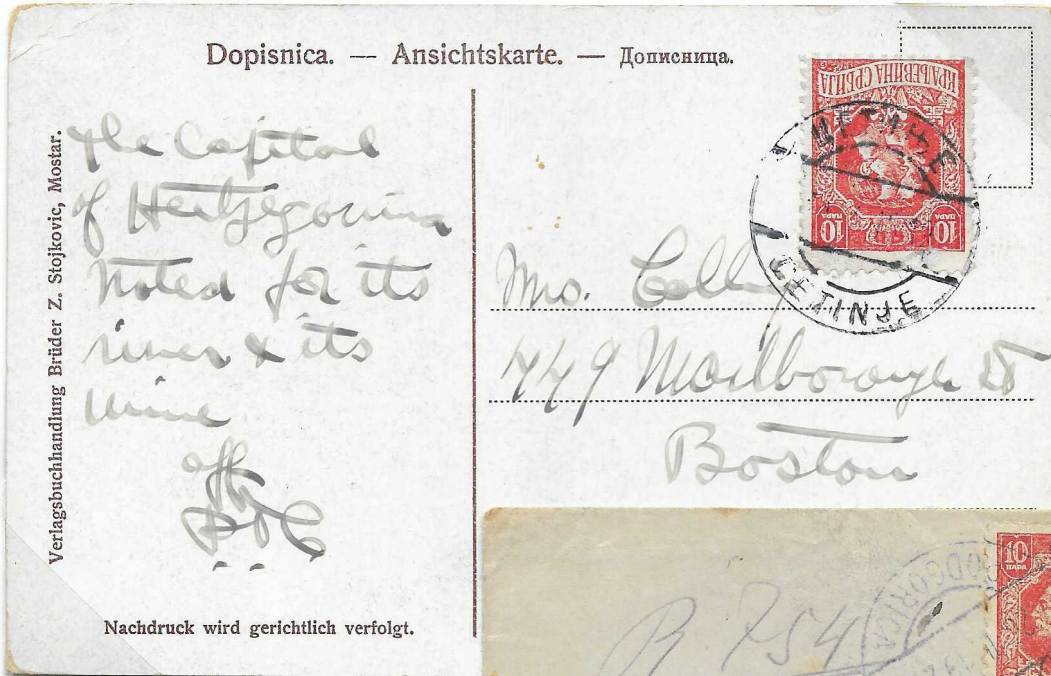 Dopisnica. — Ansichtskarte. — Дописница.
Verlagsbuchhandlung Brüder Z. Stojkovic, Mostar.
The Capital
of Hertzegovina
Noted for its
river & its
wine
Nachdruck wird gerichtlich verfolgt.
КРАЉЕВИНА СРБИЈА
10 ПАРА
10 ПАРА
ЦЕТИЊЕ
CETINJE
Mrs.
449 Marlborough St
Boston
R 754
PODGORICA
10
ПАРА